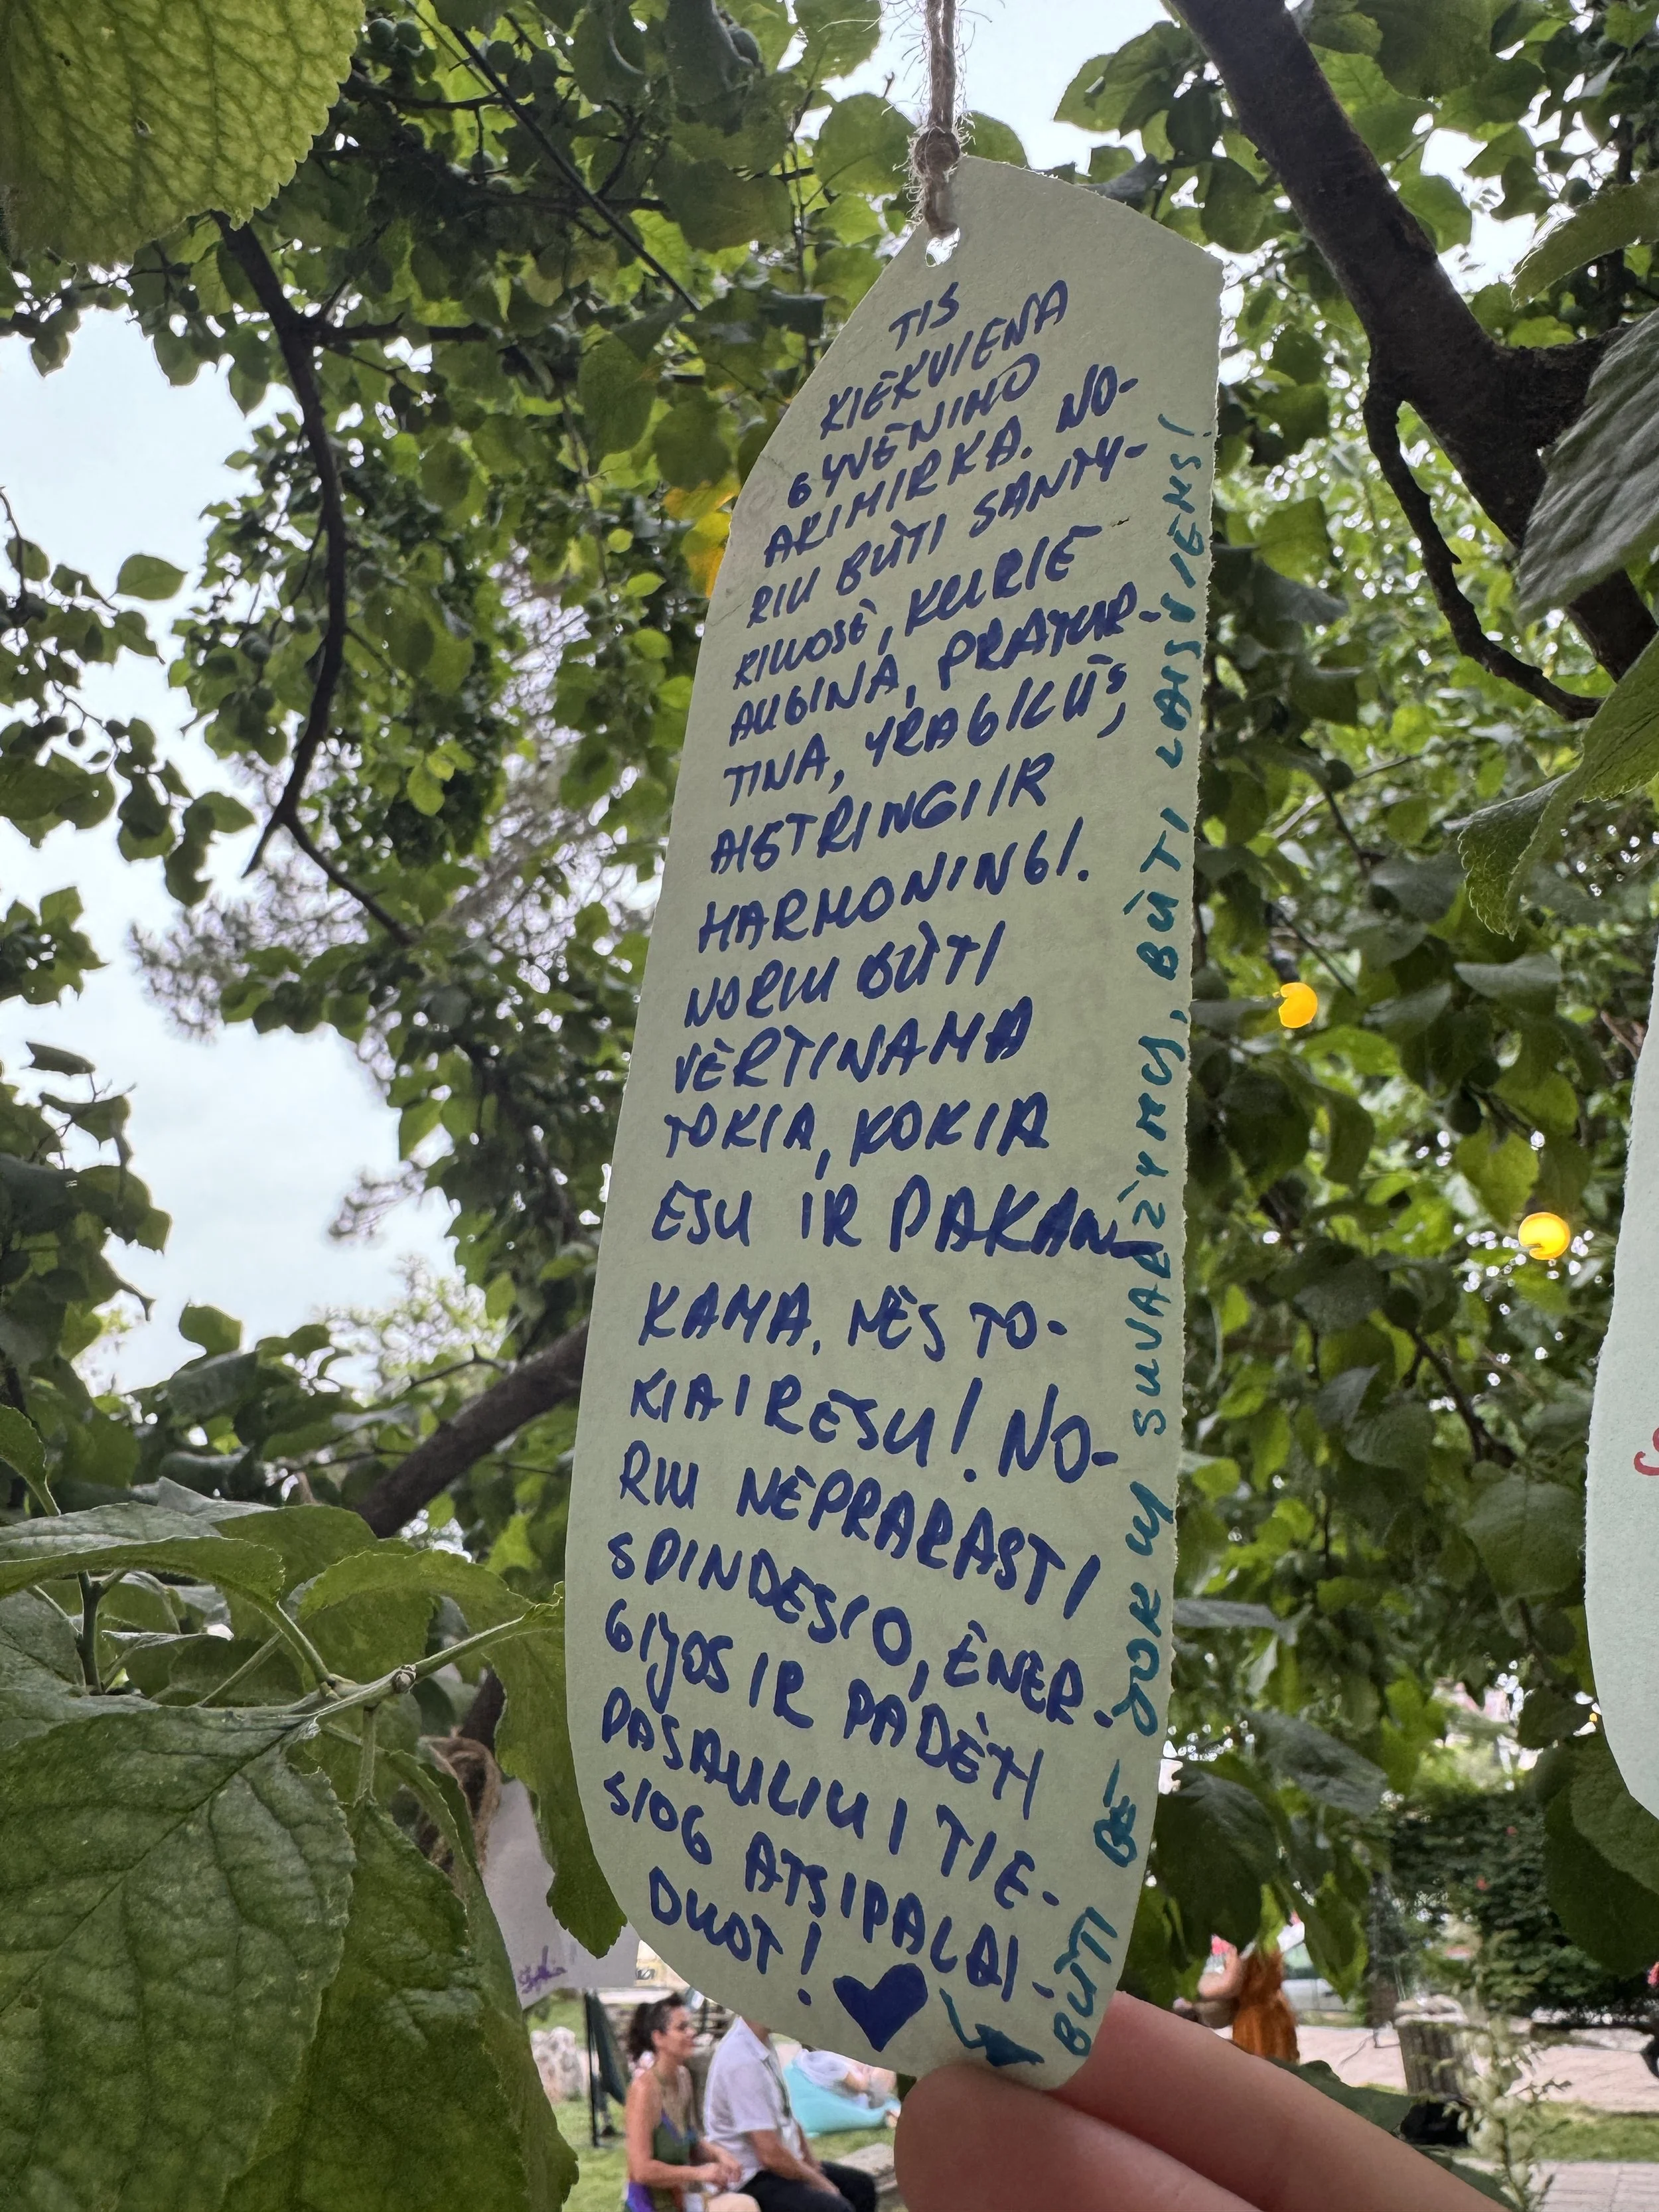 TIS
KIEKVIENA
GYVENIMO
AKIMIRKA. NO-
RIU BŪTI SANTY-
RIUOSE, KURIE
AUGINA, PRATUR-
TINA, YRA GILŪS,
AISTRINGI IR
HARMONINGI.
NORIU BŪTI
VERTINAMA
TOKIA, KOKIA
ESU IR PAKAN-
KAMA, NES TO-
KIA IR ESU! NO-
RIU NEPRARASTI
SPINDESIO, ENER-
GIJOS IR PADĖTI
PASAULIUI TIE-
SIOG ATSIPALAI-
DUOT!
BŪTI BE JOKIŲ SUVARŽYMŲ, BŪTI LAISVIEMS!